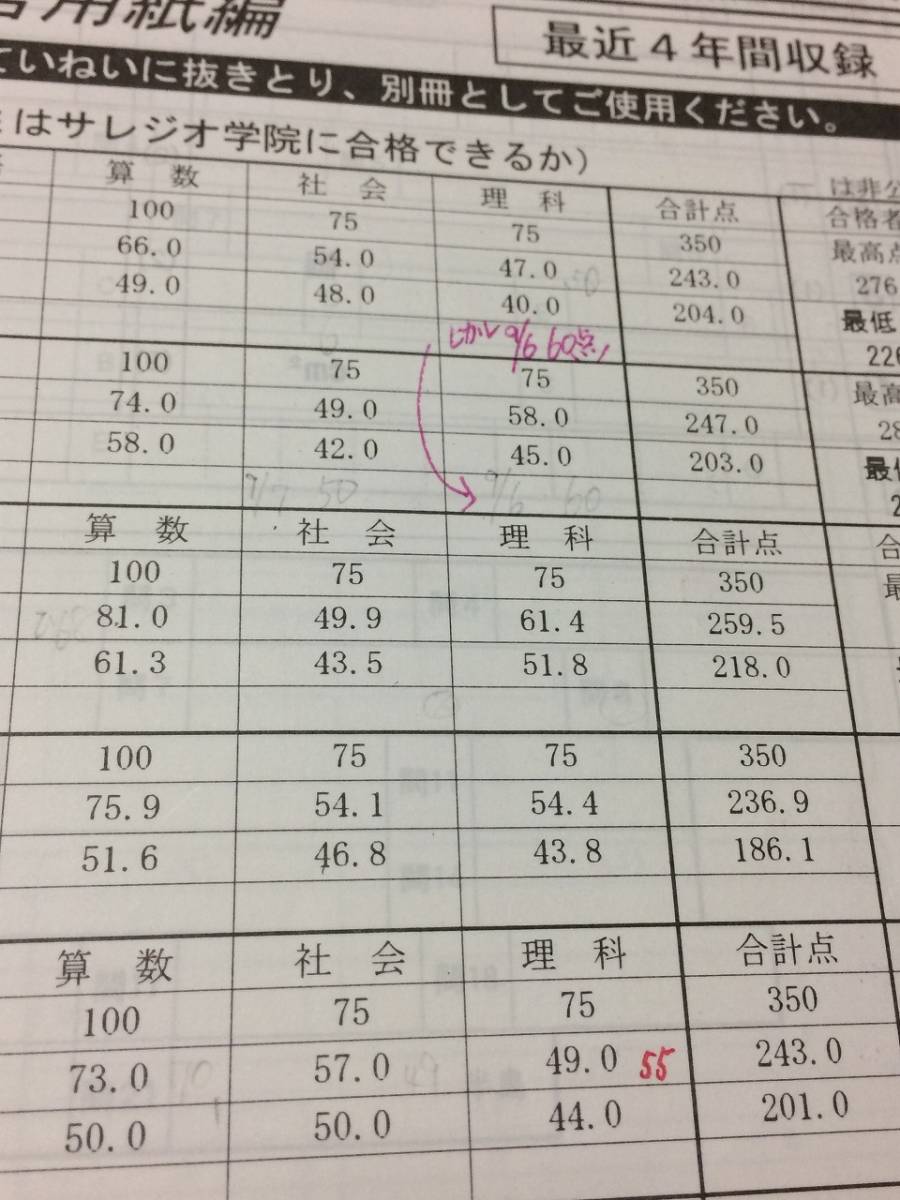 用紙編
最近４年間収録
ていねいに抜きとり、別冊としてご使用ください。
はサレジオ学院に合格できるか）
は非公
算 数 社 会 理 科 合計点 合格者
100 75 75 350 最高点
66.0 54.0 47.0 243.0 276
49.0 48.0 40.0 204.0 最低
226
しかし 9/6 60点!
100 75 75 350 最高
74.0 49.0 58.0 247.0 28
58.0 42.0 45.0 203.0 最低
9/7 50 9/6 60 2
算 数 社 会 理 科 合計点 合
100 75 75 350 最
81.0 49.9 61.4 259.5
61.3 43.5 51.8 218.0
100 75 75 350
75.9 54.1 54.4 236.9
51.6 46.8 43.8 186.1
算 数 社 会 理 科 合計点
100 75 75 350
73.0 57.0 49.0 55 243.0
50.0 50.0 44.0 201.0